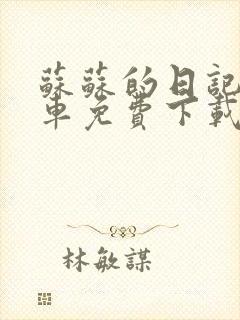 蘇蘇的日記
車免費下載
林敏謀